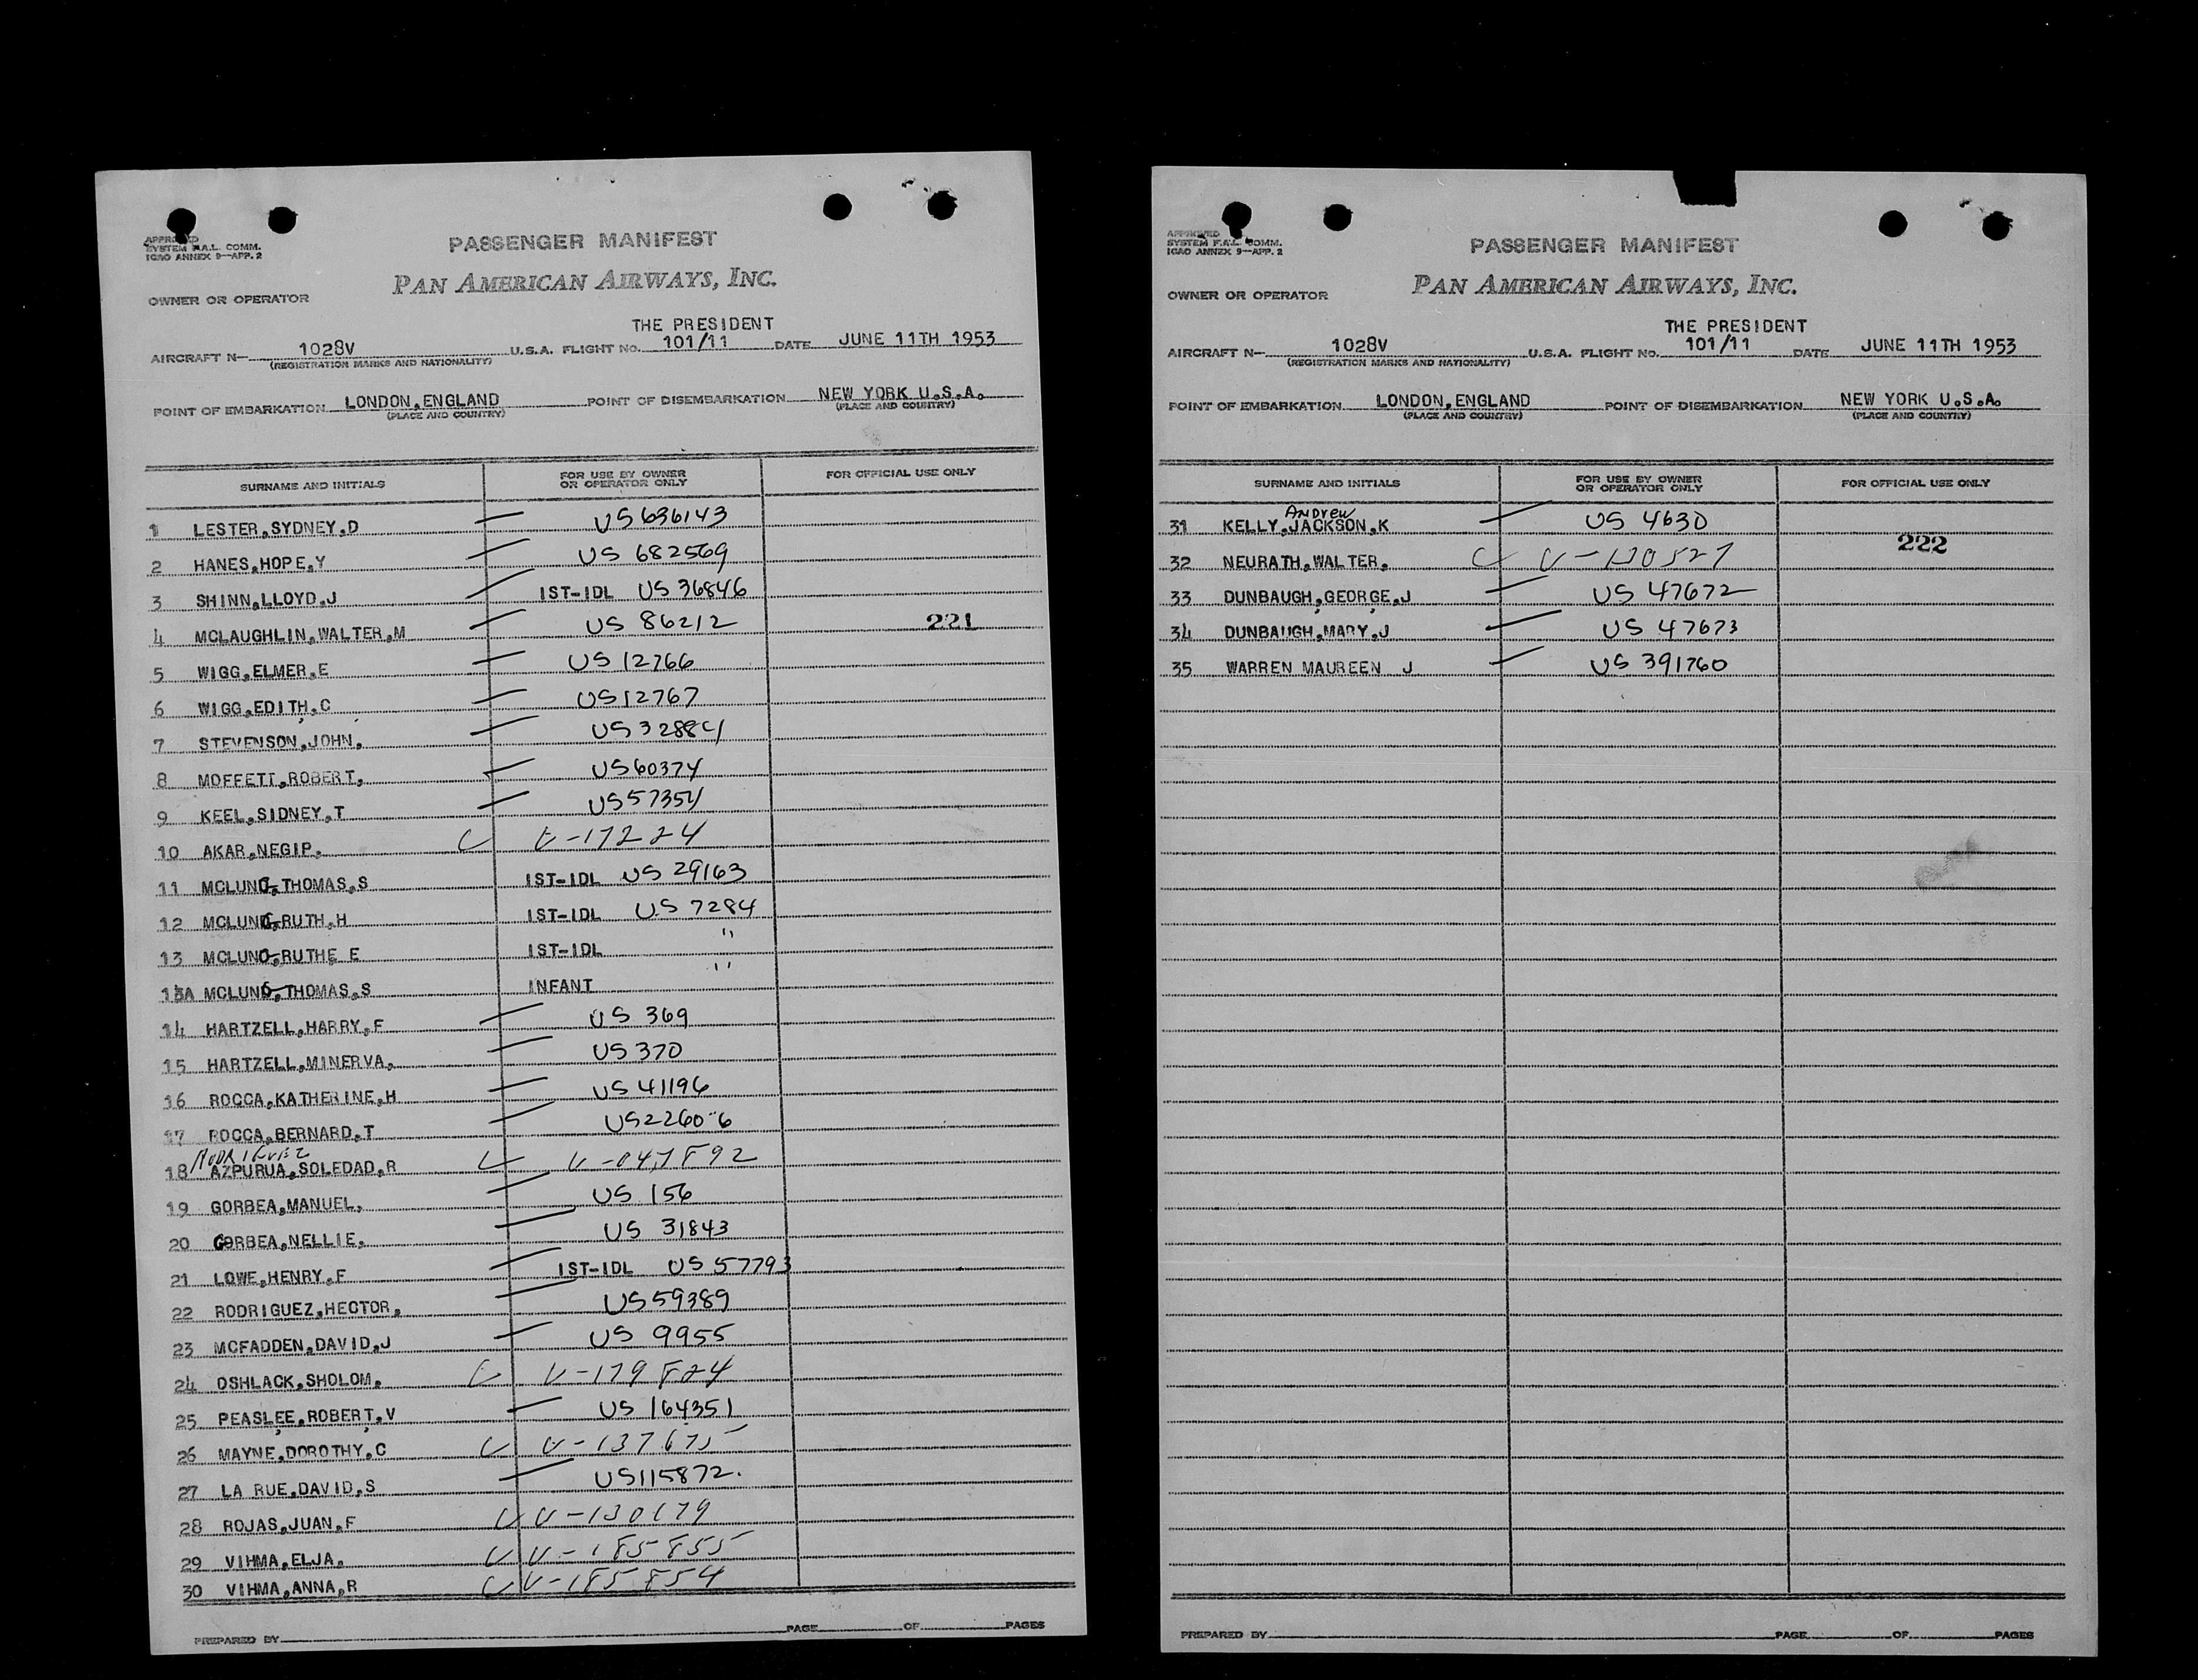 APPROVED
SYSTEM F.A.L. COMM.
ICAO ANNEX 9—APP. 2
PASSENGER MANIFEST
PAN AMERICAN AIRWAYS, INC.
OWNER OR OPERATOR
THE PRESIDENT
AIRCRAFT N— 1028V U.S.A. FLIGHT NO. 101/11 DATE JUNE 11TH 1953
(REGISTRATION MARKS AND NATIONALITY)
POINT OF EMBARKATION LONDON,ENGLAND POINT OF DISEMBARKATION NEW YORK U.S.A.
(PLACE AND COUNTRY) (PLACE AND COUNTRY)
SURNAME AND INITIALS FOR USE BY OWNER OR OPERATOR ONLY FOR OFFICIAL USE ONLY
1 LESTER,SYDNEY,D US 636143
2 HANES,HOPE,Y US 682569
3 SHINN,LLOYD,J IST-IDL US 36846
4 MCLAUGHLIN,WALTER,M US 86212 221
5 WIGG,ELMER,E US 12766
6 WIGG,EDITH,C US 12767
7 STEVENSON,JOHN, US 32884
8 MOFFETT,ROBERT, US 60374
9 KEEL,SIDNEY,T US 57354
10 AKAR,NEGIP, V-17224
11 MCLUNG,THOMAS,S IST-IDL US 29163
12 MCLUNG,RUTH,H IST-IDL US 7284
13 MCLUNG,RUTHE E IST-IDL "
13A MCLUNG,THOMAS,S INFANT "
14 HARTZELL,HARRY,F US 369
15 HARTZELL,MINERVA, US 370
16 ROCCA,KATHERINE,H US 41196
17 ROCCA,BERNARD,T US 22606
RODRIGUEZ
18 AZPURUA,SOLEDAD,R V-047892
19 GORBEA,MANUEL, US 156
20 GORBEA,NELLIE, US 31843
21 LOWE,HENRY,F IST-IDL US 57793
22 RODRIGUEZ,HECTOR, US 59389
23 MCFADDEN,DAVID,J US 9955
24 OSHLACK,SHOLOM, V-179824
25 PEASLEE,ROBERT,V US 164351
26 MAYNE,DOROTHY,C V-137675
27 LA RUE,DAVID,S US 115872.
28 ROJAS,JUAN,F V-130179
29 VIHMA,ELJA, V-185855
30 VIHMA,ANNA,R V-185854
PREPARED BY PAGE OF PAGES
APPROVED
SYSTEM F.A.L. COMM.
ICAO ANNEX 9—APP. 2
PASSENGER MANIFEST
PAN AMERICAN AIRWAYS, INC.
OWNER OR OPERATOR
THE PRESIDENT
AIRCRAFT N— 1028V U.S.A. FLIGHT NO. 101/11 DATE JUNE 11TH 1953
(REGISTRATION MARKS AND NATIONALITY)
POINT OF EMBARKATION LONDON,ENGLAND POINT OF DISEMBARKATION NEW YORK U.S.A.
(PLACE AND COUNTRY) (PLACE AND COUNTRY)
SURNAME AND INITIALS FOR USE BY OWNER OR OPERATOR ONLY FOR OFFICIAL USE ONLY
Andrew
31 KELLY,JACKSON,K US 4630
222
32 NEURATH,WALTER, V-120527
33 DUNBAUGH,GEORGE,J US 47672
34 DUNBAUGH,MARY,J US 47673
35 WARREN MAUREEN J US 391760
PREPARED BY PAGE OF PAGES